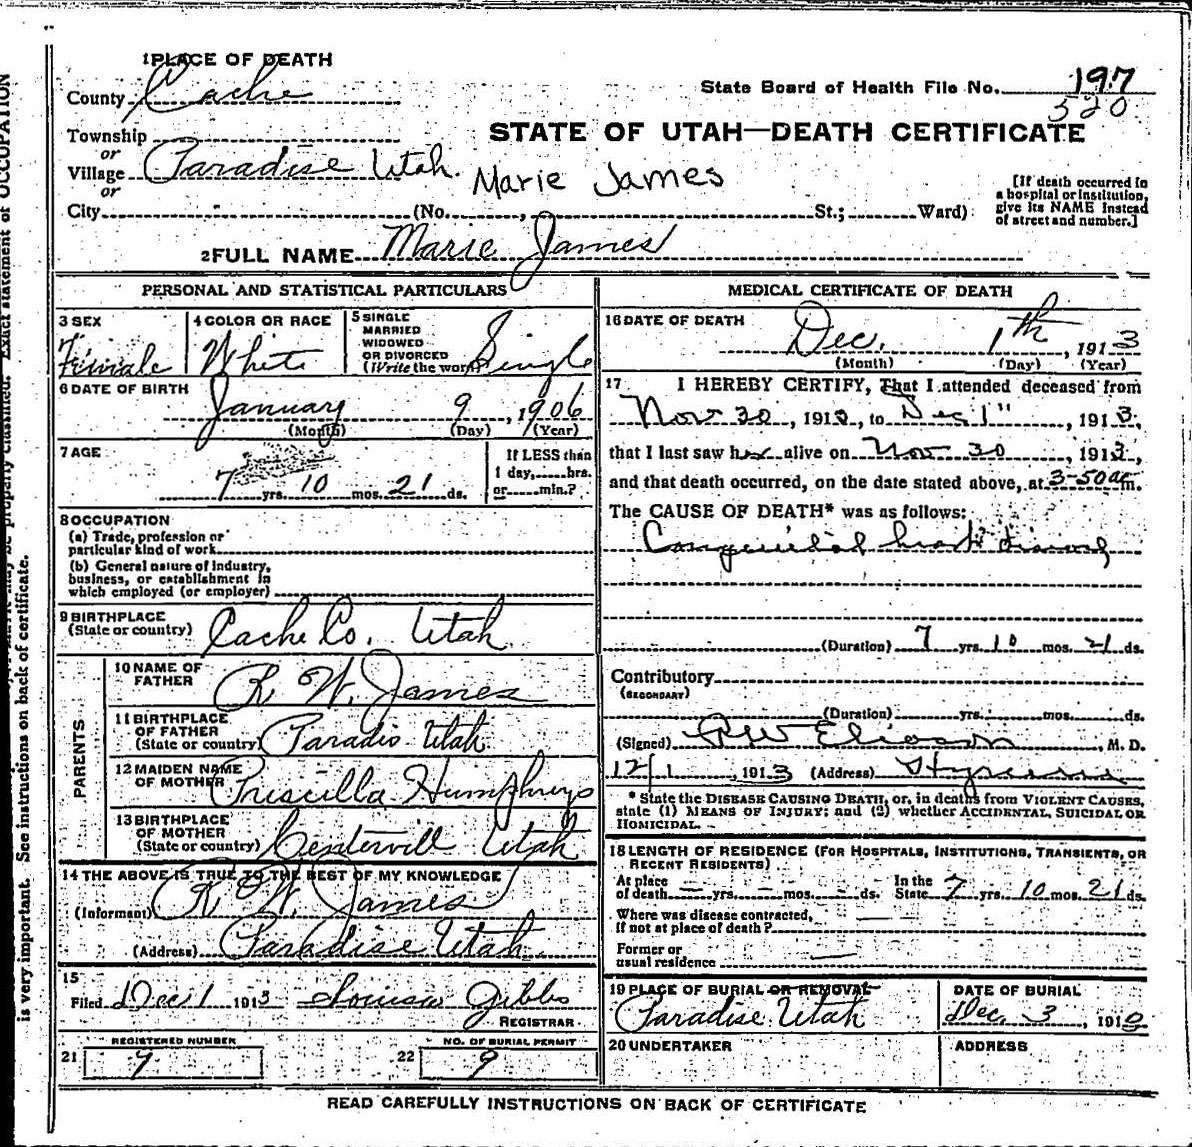 1 PLACE OF DEATH
County Cache
State Board of Health File No. 197
520
Township
or
Village Paradise Utah.
or
STATE OF UTAH—DEATH CERTIFICATE
Marie James
City (No. , St.; Ward)
[If death occurred in
a hospital or institution,
give its NAME instead
of street and number.]
2 FULL NAME Marie James
PERSONAL AND STATISTICAL PARTICULARS
3 SEX
Female
4 COLOR OR RACE
White
5 SINGLE
MARRIED
WIDOWED
OR DIVORCED
(Write the word)
Single
6 DATE OF BIRTH
January 9, 1906
(Month) (Day) (Year)
7 AGE
7 yrs. 10 mos. 21 ds.
If LESS than
1 day, hrs.
or min.?
8 OCCUPATION
(a) Trade, profession or
particular kind of work
(b) General nature of industry,
business, or establishment in
which employed (or employer)
9 BIRTHPLACE
(State or country) Cache Co. Utah
PARENTS
10 NAME OF
FATHER R. W. James
11 BIRTHPLACE
OF FATHER
(State or country) Paradis Utah
12 MAIDEN NAME
OF MOTHER Priscilla Humphreys
13 BIRTHPLACE
OF MOTHER
(State or country) Centervill Utah
14 THE ABOVE IS TRUE TO THE BEST OF MY KNOWLEDGE
(Informant) R. W. James
(Address) Paradise Utah
15
Filed Dec 1 1913 Louisa Gibbs
REGISTRAR
21 REGISTERED NUMBER
9
22 NO. OF BURIAL PERMIT
9
MEDICAL CERTIFICATE OF DEATH
16 DATE OF DEATH
Dec. 1th, 1913
(Month) (Day) (Year)
17 I HEREBY CERTIFY, That I attended deceased from
Nov 30, 1913, to Dec 1", 1913,
that I last saw her alive on Nov 30, 1913,
and that death occurred, on the date stated above, at 3-50 am.
The CAUSE OF DEATH* was as follows:
Congenital heart disease
(Duration) 7 yrs. 10 mos. 21 ds.
Contributory
(SECONDARY)
(Duration) yrs. mos. ds.
(Signed) Eliason, M. D.
12/1, 1913 (Address) Hyrum
* State the DISEASE CAUSING DEATH, or, in deaths from VIOLENT CAUSES,
state (1) MEANS OF INJURY; and (2) whether ACCIDENTAL, SUICIDAL OR
HOMICIDAL.
18 LENGTH OF RESIDENCE (FOR HOSPITALS, INSTITUTIONS, TRANSIENTS, OR
RECENT RESIDENTS)
At place
of death yrs. mos. ds. In the
State 7 yrs. 10 mos. 21 ds.
Where was disease contracted,
if not at place of death?
Former or
usual residence
19 PLACE OF BURIAL OR REMOVAL
Paradise Utah
DATE OF BURIAL
Dec. 3, 1913
20 UNDERTAKER
ADDRESS
READ CAREFULLY INSTRUCTIONS ON BACK OF CERTIFICATE
is very important. See instructions on back of certificate.
properly classified. Exact statement of OCCUPATION